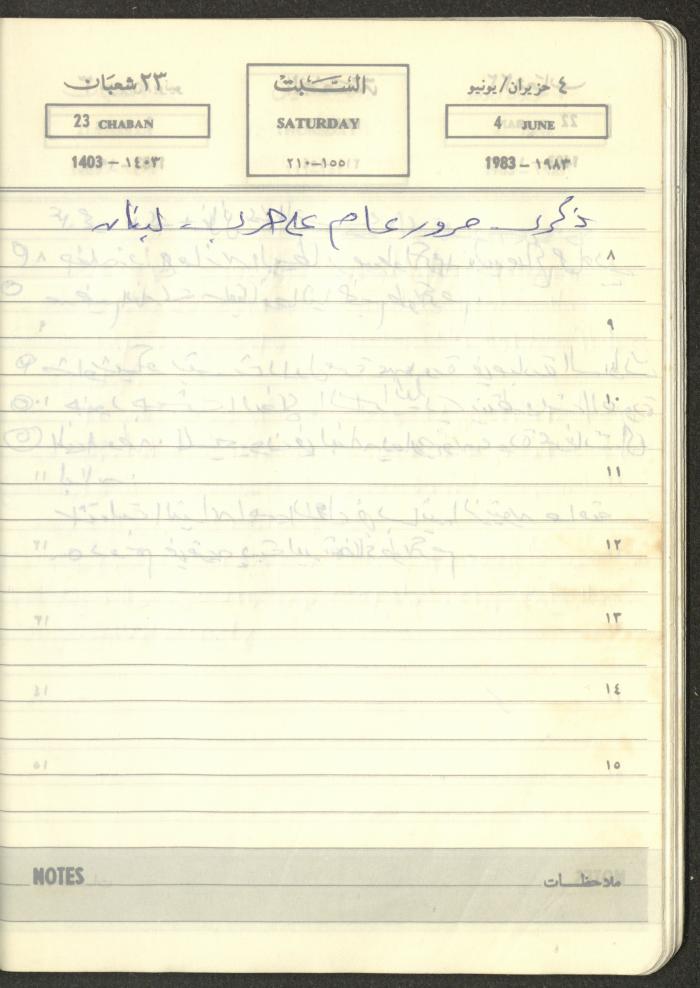 ٤ حزيران/يونيو
السَّبت
٢٣ شعبَان
4 JUNE
SATURDAY
23 CHABAN
1983 – ١٩٨٣
٢١٠–١٥٥
1403 – ١٤٠٣
ذكرى مرور عام على حرب لبنان
٨
٩
١٠
١١
١٢
١٣
١٤
١٥
NOTES
ملاحظات